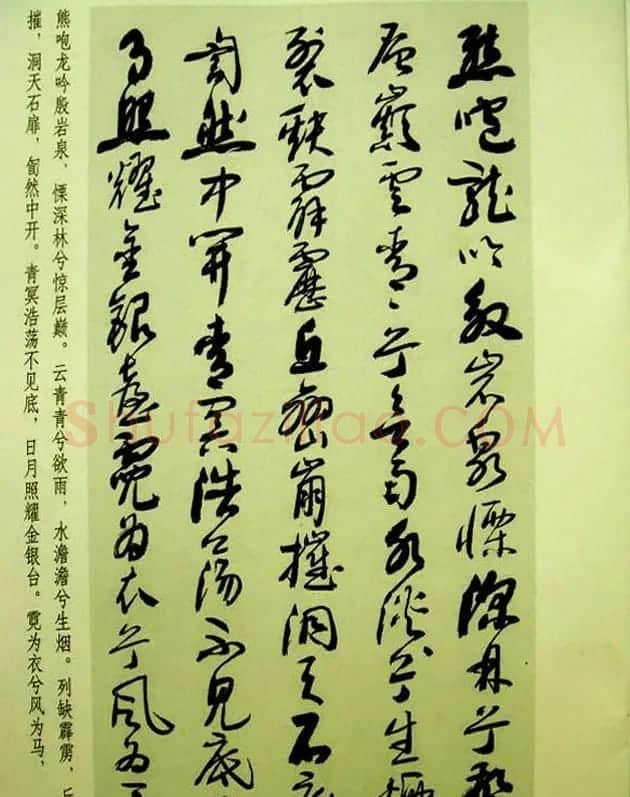 熊咆龍吟殷岩泉慄深林兮
層巔雲青々兮欲雨水淡兮生
裂缺霹靂丘巒崩摧洞天石
訇然中開青冥浩蕩不見底
月照耀金銀臺霓为衣兮風为
熊咆龙吟殷岩泉，慄深林兮惊层巅。云青青兮欲雨，水澹澹兮生烟。列缺霹雳，
摧，洞天石扉，訇然中开。青冥浩荡不见底，日月照耀金银台。霓为衣兮风为马，